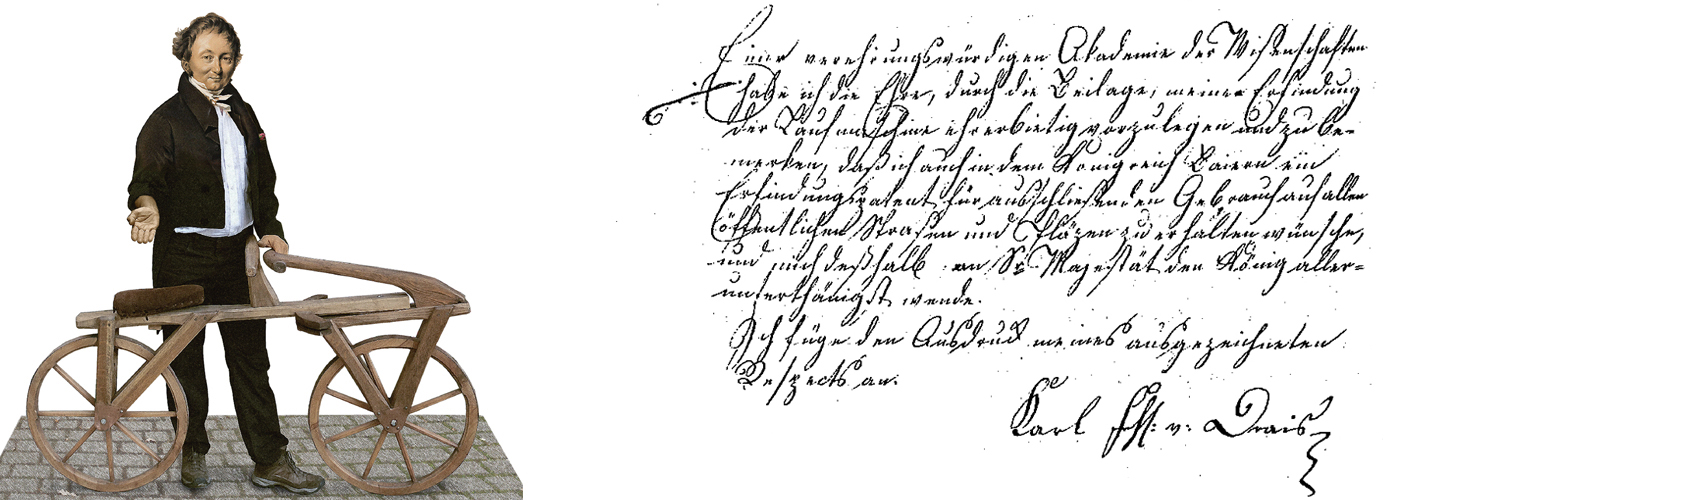 Einer verehrungswürdigen Akademie der Wissenschaften
habe ich die Ehre, durch die Beilage, meine Erfindung
der Laufmaschine ehrerbietig vorzulegen und zu be-
merken, daß ich auch in dem Königreich Baiern ein
Erfindungspatent für ausschließenden Gebrauch auf allen
öffentlichen Strasen und Pläzen zu erhalten wünsche,
und mich deßhalb an Se Majestät den König aller=
unterthänigst wende.
Ich füge den Ausdruck meines ausgezeichneten
Respects an.
Karl Frh: v: Drais